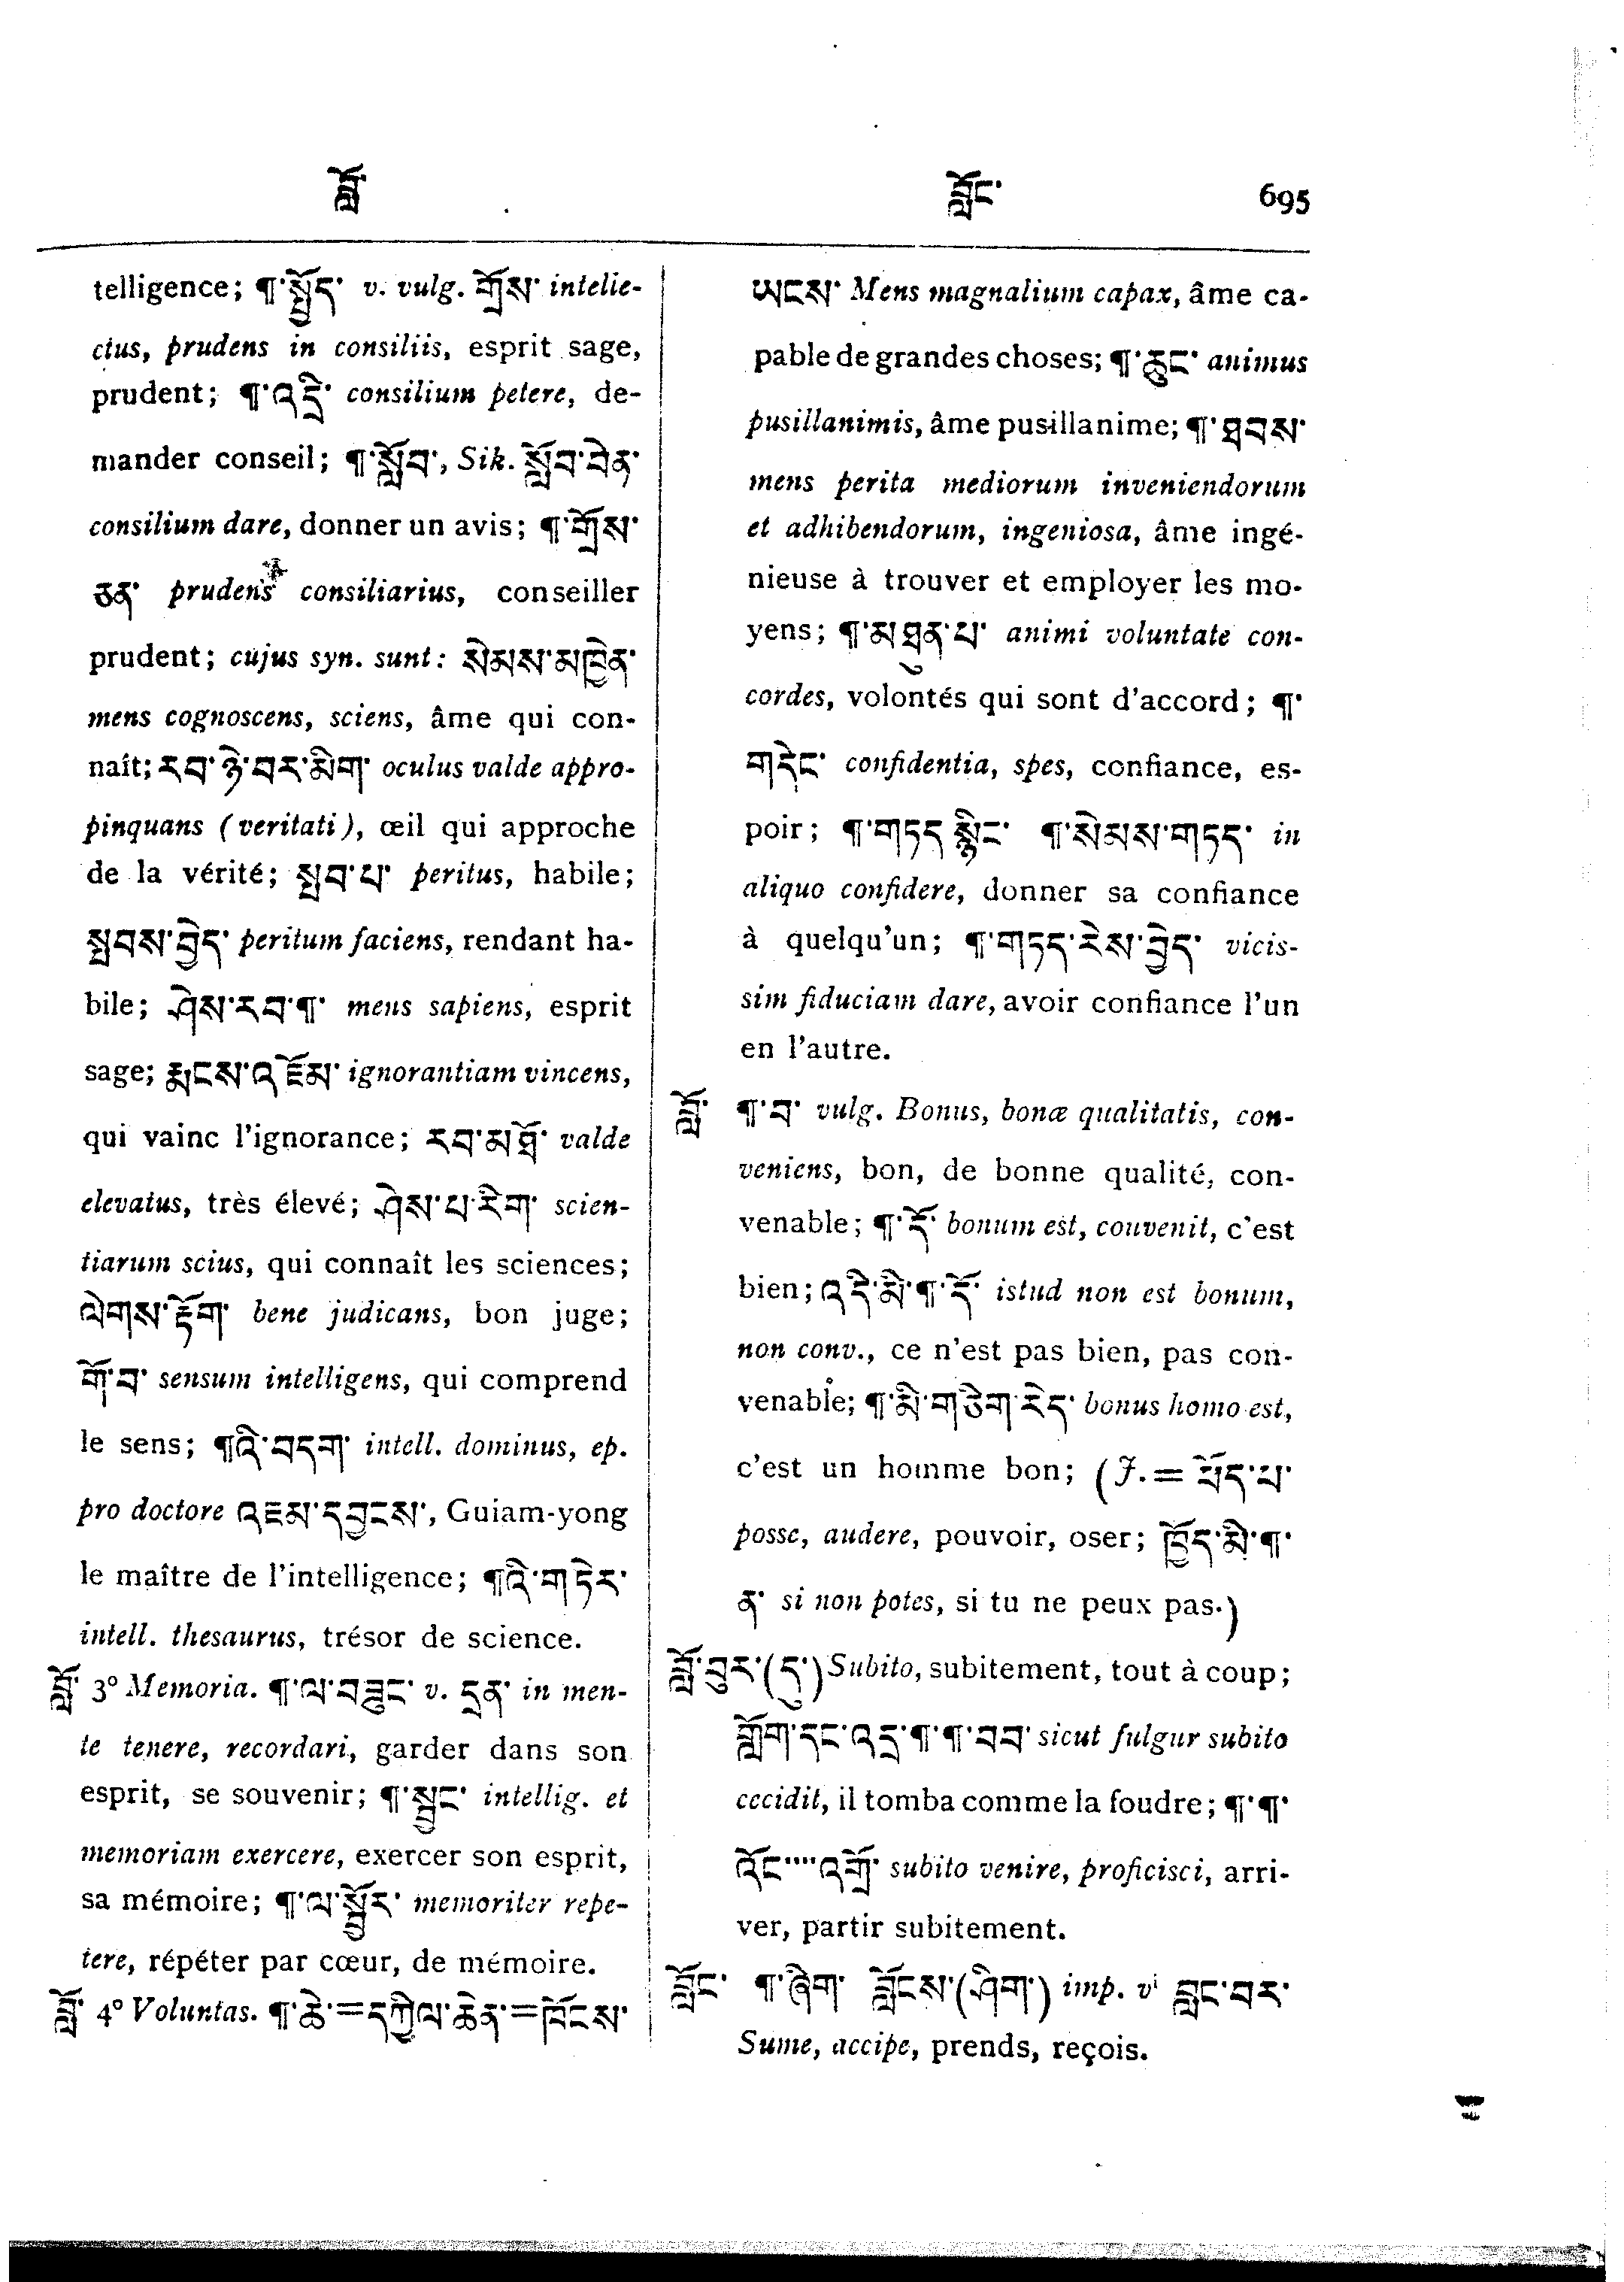 བློ་
བློང་ 695
telligence; ¶་སྤྱོད་ v. vulg. གྲོས་ intelle-
ctus, prudens in consiliis, esprit sage,
prudent; ¶་འདྲི་ consilium petere, de-
mander conseil; ¶་སློབ་, Sik. སློབ་བེན་
consilium dare, donner un avis; ¶་གྲོས་
ཅན་ prudens consiliarius, conseiller
prudent; cujus syn. sunt: སེམས་མཁྱེན་
mens cognoscens, sciens, âme qui con-
naît; རབ་ཉེ་བར་མིག་ oculus valde appro-
pinquans (veritati), œil qui approche
de la vérité; སྤྲབ་པ་ peritus, habile;
སྤྲབས་བྱེད་ peritum faciens, rendant ha-
bile; ཤེས་རབ་¶་ mens sapiens, esprit
sage; རྨངས་འཇོམ་ ignorantiam vincens,
qui vainc l'ignorance; རབ་མཐོ་ valde
elevatus, très élevé; ཤེས་པ་རིག་ scien-
tiarum scius, qui connaît les sciences;
ལེགས་རྟོག་ bene judicans, bon juge;
གོ་བ་ sensum intelligens, qui comprend
le sens; ¶འི་བདག་ intell. dominus, ep.
pro doctore འཇམ་དབྱངས་, Guiam-yong
le maître de l'intelligence; ¶འི་གཏེར་
intell. thesaurus, trésor de science.
བློ་ 3º Memoria. ¶་ལ་བཟུང་ v. དྲན་ in men-
te tenere, recordari, garder dans son
esprit, se souvenir; ¶་སྦྱང་ intellig. et
memoriam exercere, exercer son esprit,
sa mémoire; ¶་ལ་སྦྱོར་ memoriter repe-
tere, répéter par cœur, de mémoire.
བློ་ 4º Voluntas. ¶་ཆེ་=དཀྱིལ་ཆེན་=ཁོངས་
ཡངས་ Mens magnalium capax, âme ca-
pable de grandes choses; ¶་ཆུང་ animus
pusillanimis, âme pusillanime; ¶་ཐབས་
mens perita mediorum inveniendorum
et adhibendorum, ingeniosa, âme ingé-
nieuse à trouver et employer les mo-
yens; ¶་མཐུན་པ་ animi voluntate con-
cordes, volontés qui sont d'accord; ¶་
གདེང་ confidentia, spes, confiance, es-
poir; ¶་གཏད་སྙིང་ ¶་སེམས་གཏད་ in
aliquo confidere, donner sa confiance
à quelqu'un; ¶་གཏད་རེས་བྱེད་ vicis-
sim fiduciam dare, avoir confiance l'un
en l'autre.
བློ་ ¶་བ་ vulg. Bonus, bonæ qualitatis, con-
veniens, bon, de bonne qualité, con-
venable; ¶་དོ་ bonum est, convenit, c'est
bien; འདི་མི་¶་དོ་ istud non est bonum,
non conv., ce n'est pas bien, pas con-
venable; ¶་མི་གཅིག་རེད་ bonus homo est,
c'est un homme bon; (J. = ཕོད་པ་
posse, audere, pouvoir, oser; ཁྱོད་མི་¶་
ན་ si non potes, si tu ne peux pas.)
བློ་བུར་(དུ་) Subito, subitement, tout à coup;
གློག་དང་འདྲ་¶་¶་བབ་ sicut fulgur subito
cecidit, il tomba comme la foudre; ¶་¶་
འོང་་་་་འགྲོ་ subito venire, proficisci, arri-
ver, partir subitement.
བློང་ ¶་ཞིག་ བློངས་(ཤིག་) imp. v. བླང་བར་
Sume, accipe, prends, reçois.